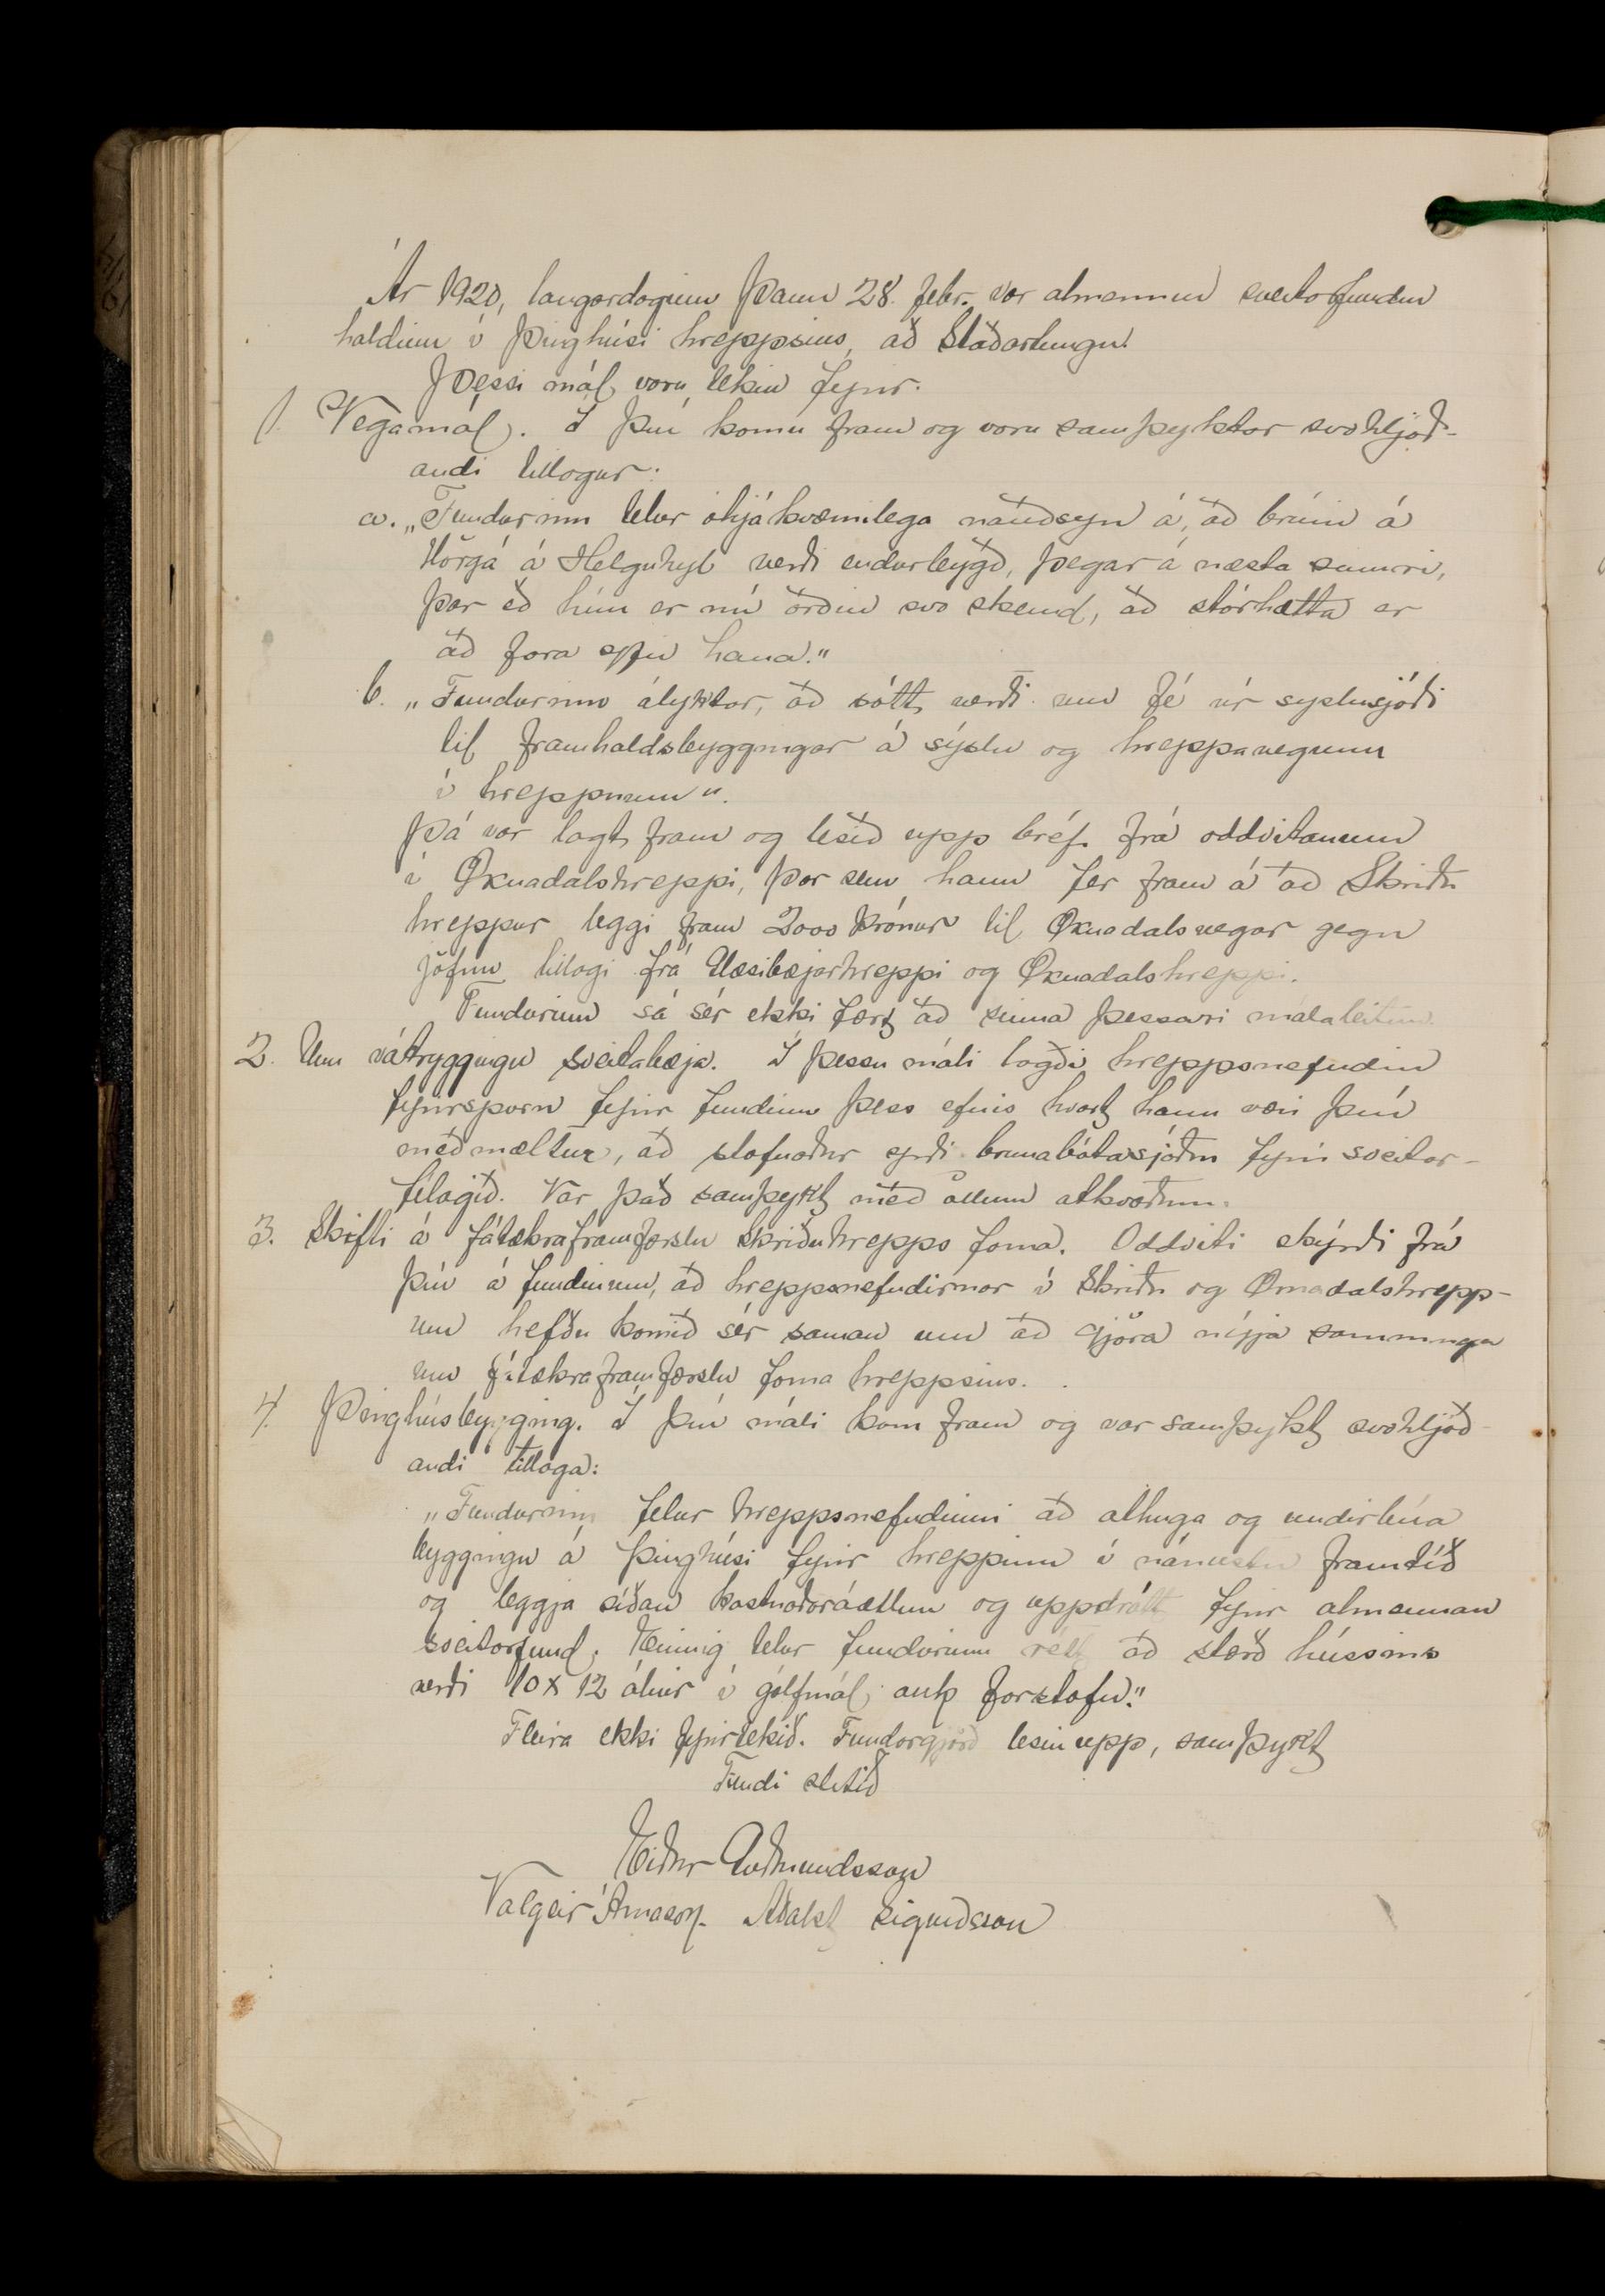 Ár 1920, laugardaginn þann 28. febr. var almennur sveitarfundur
haldinn í þinghúsi hreppsins, að Staðartungu.
Þessi mál voru tekin fyrir.
1. Vegamál. Í því komu fram og voru samþyktar svohljóð-
andi tillögur:
a. „Fundurinn telur óhjákvæmilega nauðsyn á, að brúin á
Hörgá á Helguhyl verði endurbygð, þegar á næsta sumri,
þar eð hún er nú orðin svo skemd, að stórhætta er
að fara yfir hana."
b. „Fundurinn ályktar, að sótt verði um fé úr sýslusjóði
til framhaldsbyggingar á sýslu og hreppavegunum
í hreppnum".
Þá var lagt fram og lesið upp bréf frá oddvitanum
í Öxnadalshreppi, þar sem hann fer fram á að Skriðu
hreppur leggi fram 2000 krónur til Öxnadalsvegar gegn
jöfnu tillagi frá Glæsibæjarhreppi og Öxnadalshreppi.
Fundurinn sá sér ekki fært að sinna þessari málaleitun.
2. Um vátryggingu sveitabæja. Í þessu máli lagði hreppsnefndin
fyrirspurn fyrir fundinn þess efnis hvort hann væri því
meðmæltur, að stofnaður yrði brunabótasjóður fyrir sveitar-
félagið. Var það samþykt með öllum atkvæðum.
3. Skifti á fátækraframfærslu Skriðuhrepps forna. Oddviti skýrði frá
því á fundinum, að hreppsnefndirnar í Skriðu og Öxnadalshrepp-
um hefðu komið sér saman um að gjöra nýja samninga
um fátækraframfærslu forna hreppsins.
4. Þinghúsbygging. Í því máli kom fram og var samþykt svohljóð-
andi tillaga:
„Fundurinn felur hreppsnefndinni að athuga og undirbúa
byggingu á þinghúsi fyrir hreppinn í nánustu framtíð
og leggja síðan kostnaðaráætlun og uppdrátt fyrir almennan
sveitarfund. Einnig telur fundurinn rétt að stærð hússins
verði 10 x 12 álnir í gólfmál, auk forstofu."
Fleira ekki fyrirtekið. Fundargjörð lesin upp, samþykt
Fundi slitið
Eiður Guðmundsson
Valgeir Árnason. Aðalst Sigurðsson